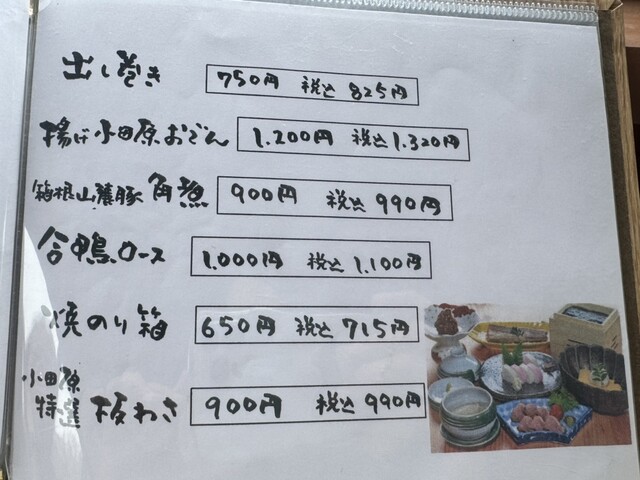 出し巻き 750円 税込 825円
揚げ小田原おでん 1.200円 税込 1.320円
箱根山麓豚角煮 900円 税込 990円
合鴨ロース 1.000円 税込 1.100円
焼のり箱 650円 税込 715円
小田原特選板わさ 900円 税込 990円